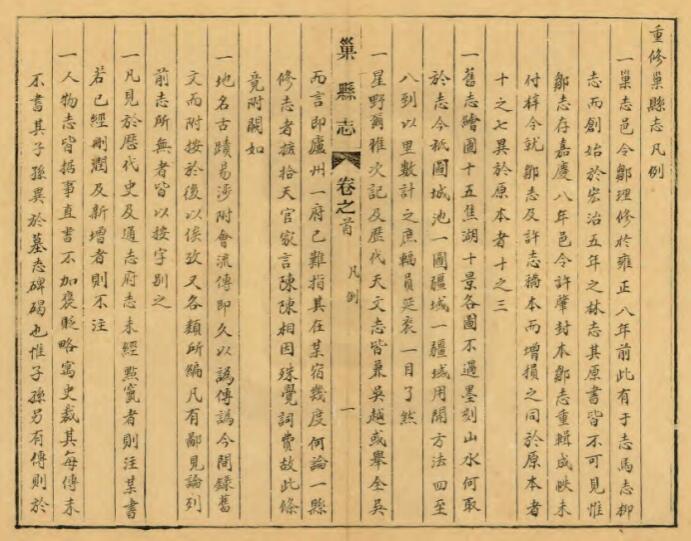 重修巢縣志凡例
一巢志邑令鄒理修於雍正八年前此有于志馬志柳
志而創始於宏治五年之林志其原書皆不可見惟
鄒志存嘉慶八年邑令許肇封本鄒志重輯成帙未
付梓今就鄒志及許志稿本而增損之同於原本者
十之七異於原本者十之三
一舊志繪圖十五蕉湖十景各圖不過墨刻山水何取
於志今祇圖城池一圖疆域一疆域用開方法四至
八到以里數計之庶輻員延袤一目了然
一星野爾雅次記及歷代天文志皆兼吳越或舉全吳
巢縣志 卷之首 凡例 一
而言即廬州一府已難指其在某宿幾度何論一縣
修志者摭拾天官家言陳陳相因殊覺詞費故此條
竟附闕如
一地名古蹟易涉附會流傳即久以譌傳譌今間錄舊
文而附按於後以俟攷又各類所編凡有鄙見論列
前志所無者皆以按字別之
一凡見於歷代史及通志府志未經點竄者則注某書
若已經刪潤及新增者則不注
一人物志皆據事直書不加褒貶略寓史裁其每傳末
不書其子孫異於墓志碑碣也惟子孫另有傳則於